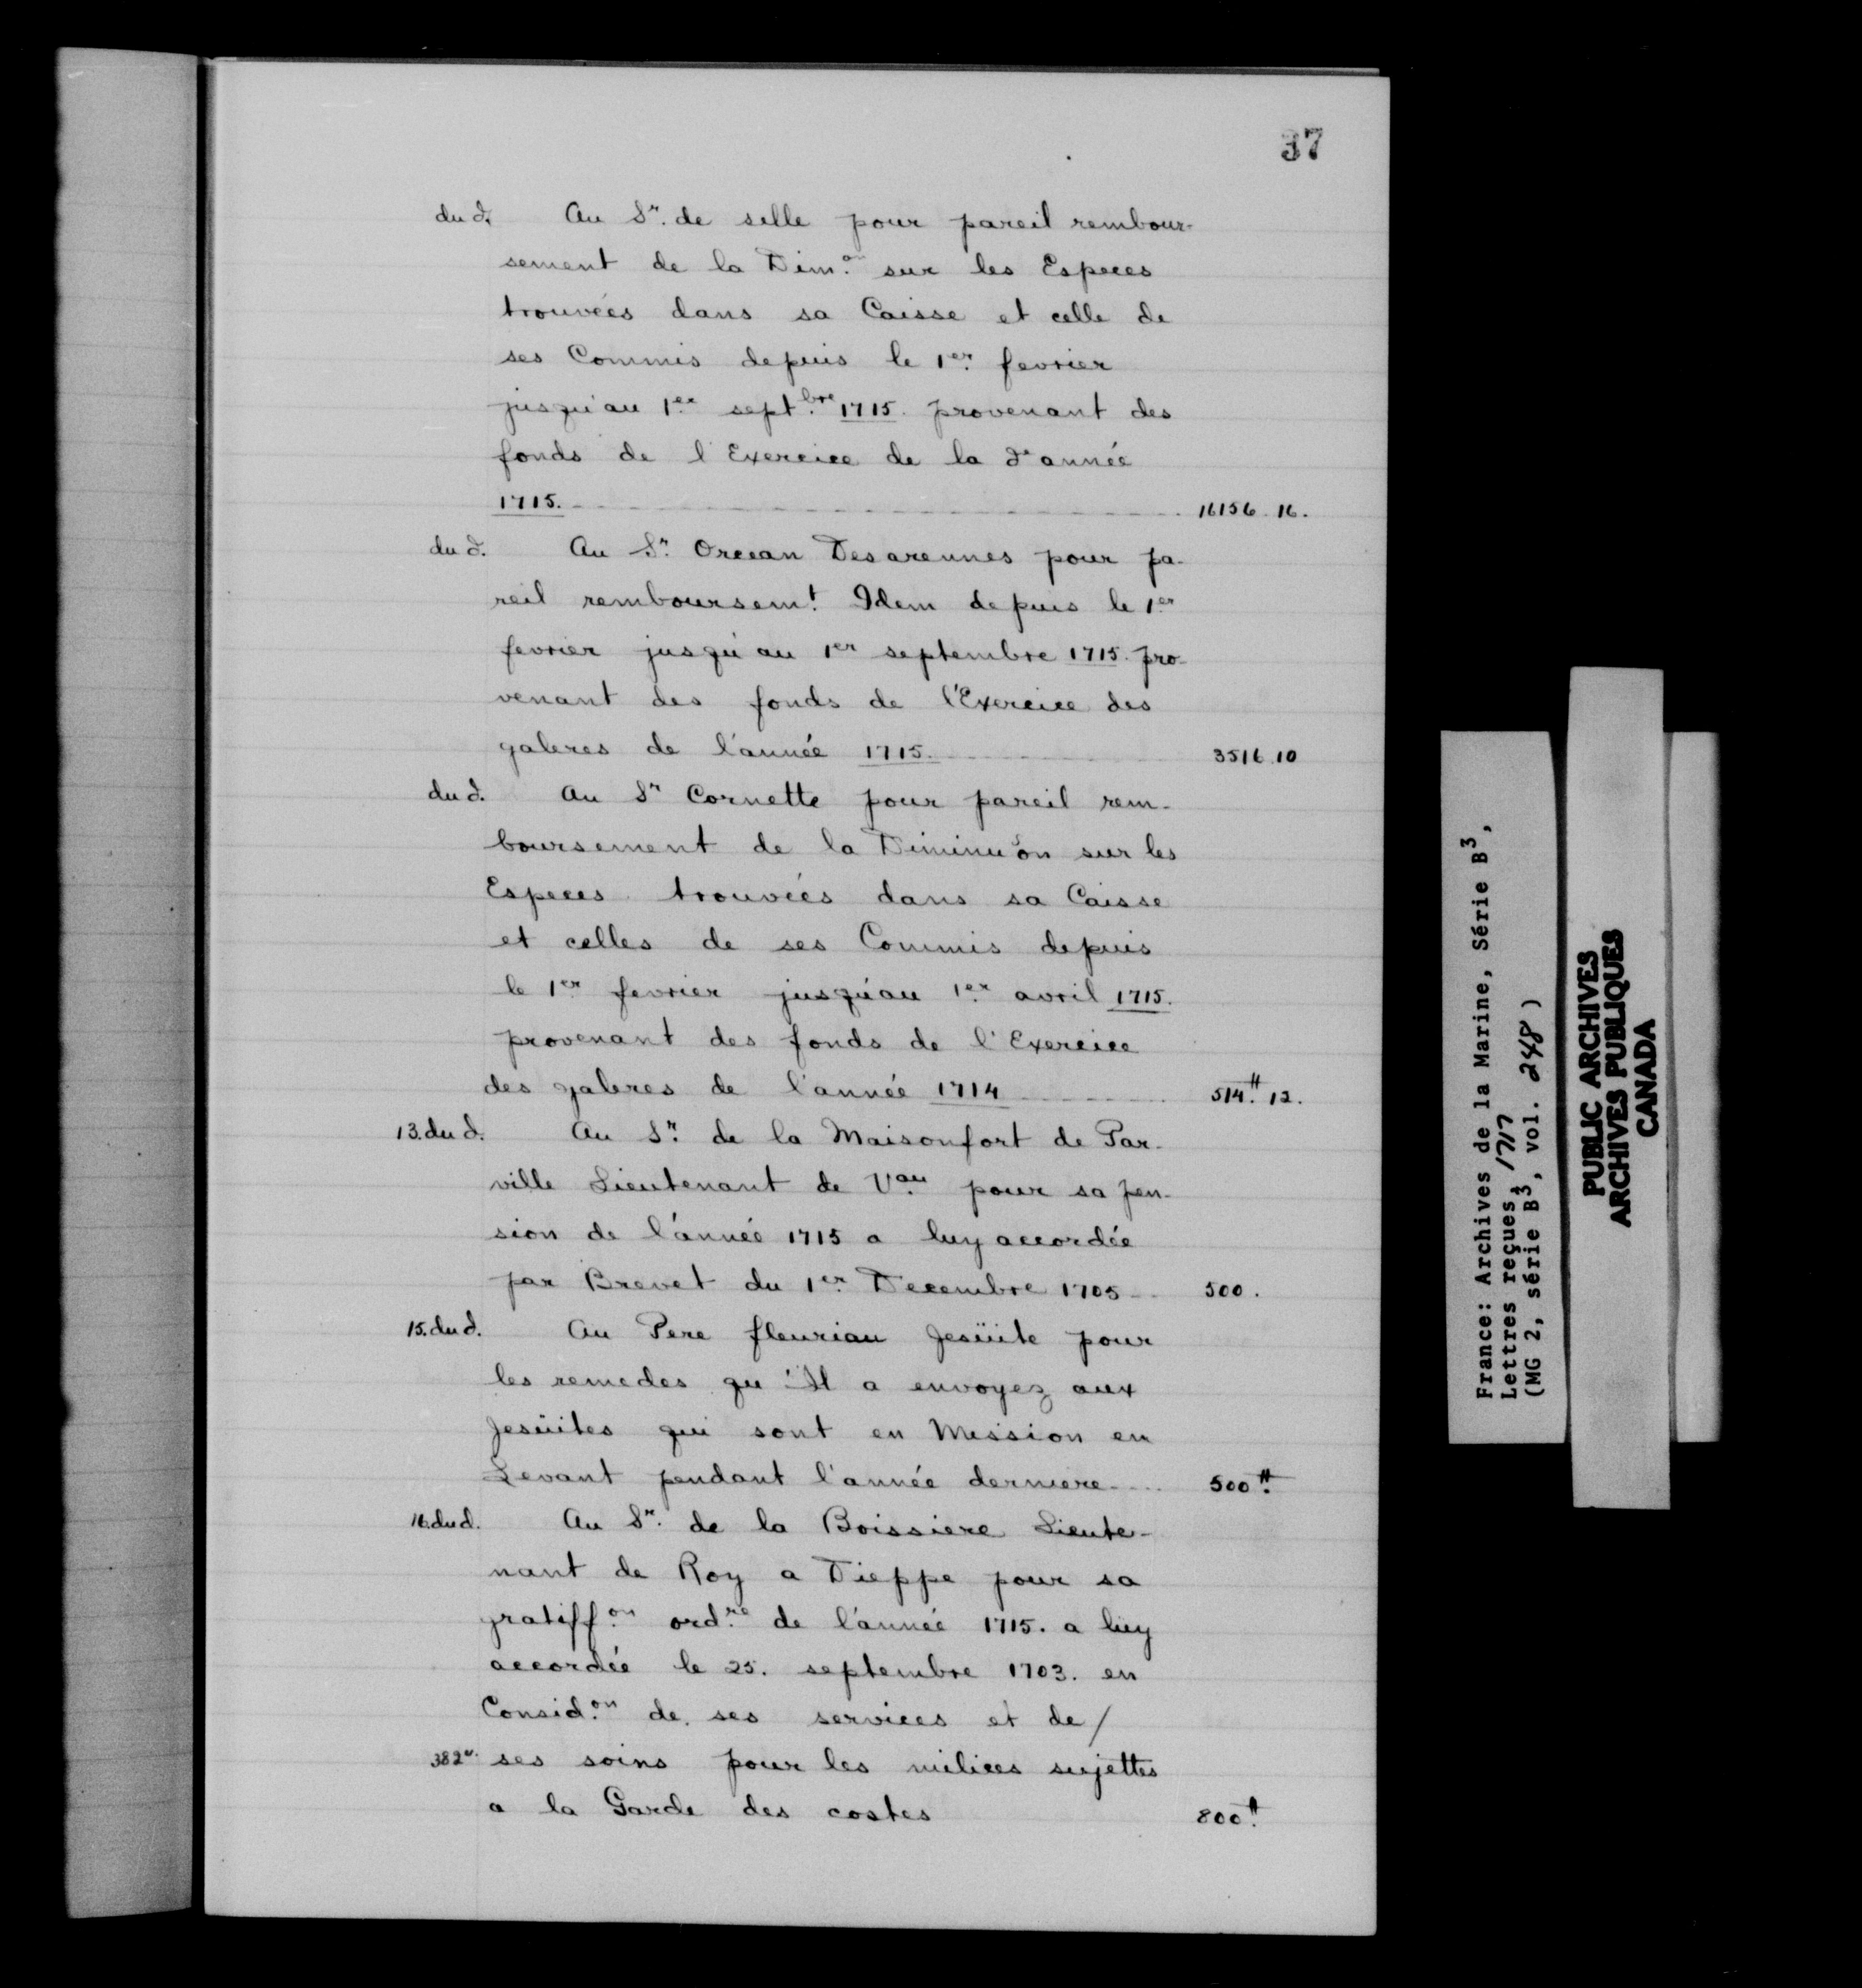 37
du d. Au Sr. de selle pour pareil rembour-
sement de la Dim.on sur les Especes
trouvées dans sa Caisse et celle de
ses Commis depuis le 1er. fevrier
jusqu'au 1er sept.bre 1715. provenant des
fonds de l'Exercice de la de année
1715. 16156. 16.
du d. Au Sr. Orceau Desarennes pour pa-
reil remboursem.t Idem depuis le 1er
fevrier jusqu'au 1er septembre 1715. pro-
venant des fonds de l'Exercice des
galeres de l'année 1715. 3516. 10
du d. Au Sr Cornette pour pareil rem-
boursement de la Diminuon sur les
Especes trouvées dans sa Caisse
et celles de ses Commis depuis
le 1er fevrier jusqu'au 1er avril 1715.
provenant des fonds de l'Exercice
des galeres de l'année 1714 514.# 12.
13. du d. Au Sr. de la Maisonfort de Par-
ville Lieutenant de Vau pour sa pen-
sion de l'année 1715 a luy accordée
par Brevet du 1er. Decembre 1705 500.
15. du d. Au Pere fleuriau Jesüite pour
les remedes qu'Il a envoyez aux
Jesüites qui sont en Mission en
Levant pendant l'année derniere 500.#
16. du d. Au Sr. de la Boissiere Lieute-
nant de Roy a Dieppe pour sa
gratiff.on ord.re de l'année 1715. a luy
accordée le 25. septembre 1703. en
Consid.on de ses services et de /
382v. ses soins pour les milices sujettes
a la Garde des costes 800.#
France: Archives de la Marine, Série B3,
Lettres reçues, 1717
(MG 2, série B3, vol. 248)
PUBLIC ARCHIVES
ARCHIVES PUBLIQUES
CANADA